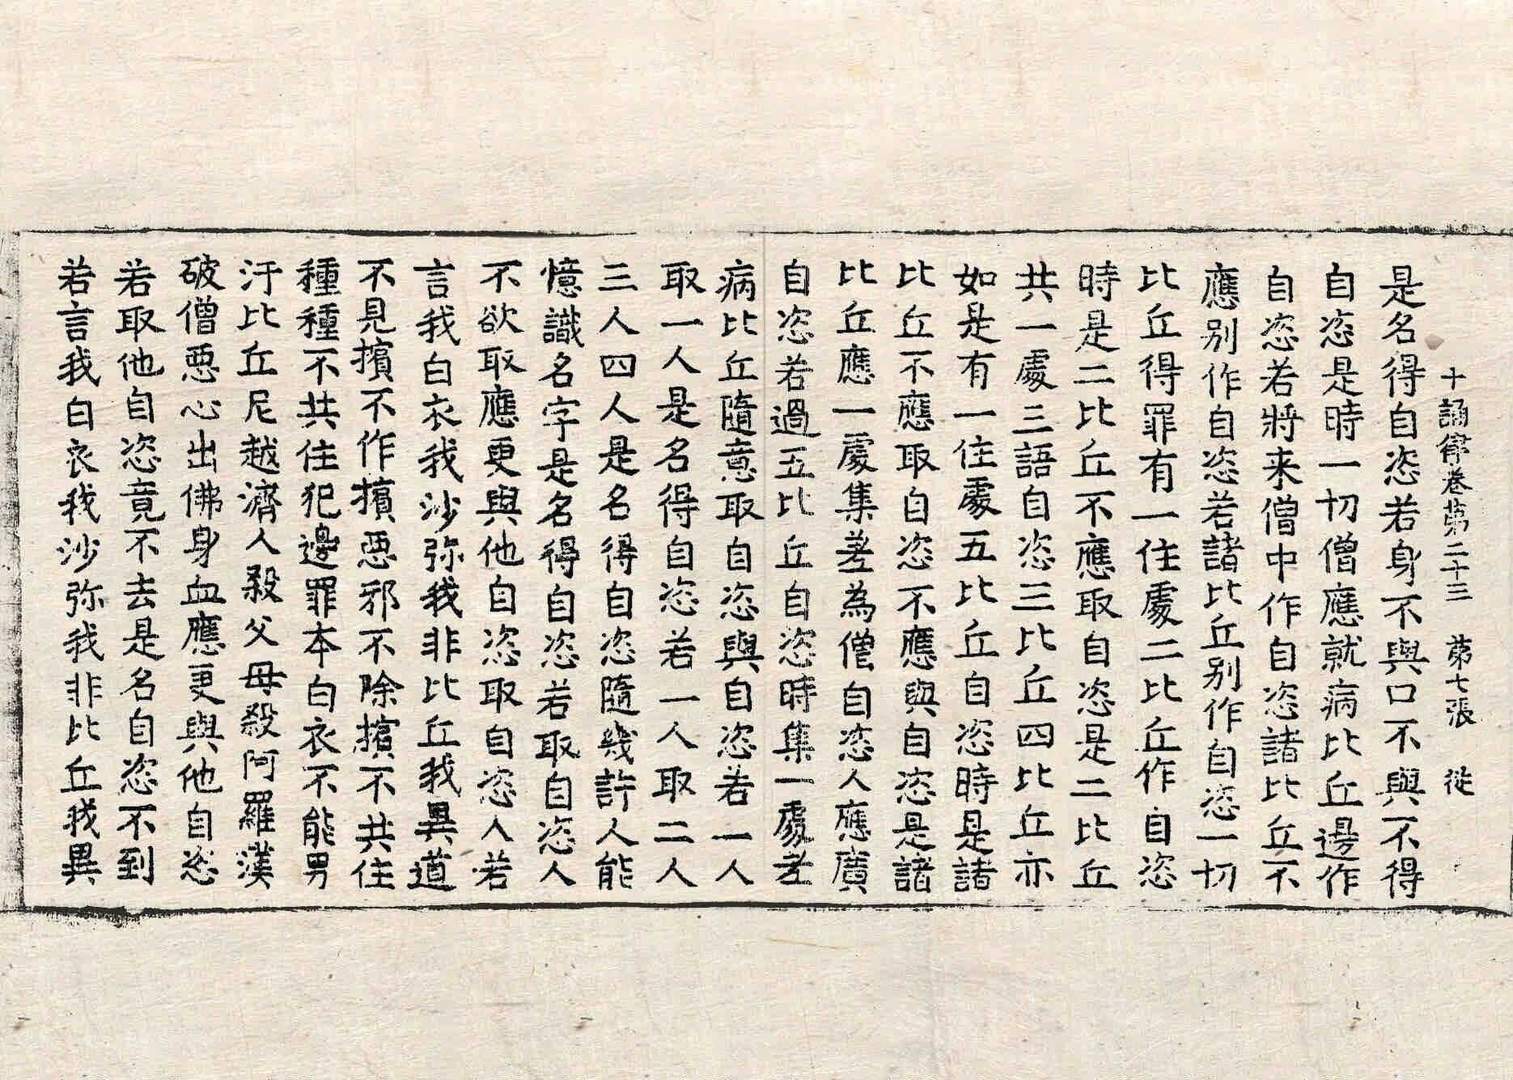 十誦律卷第二十三　第七張　従
是名得自恣若身不與口不與不得
自恣是時一切僧應就病比丘邊作
自恣若將来僧中作自恣諸比丘不
應別作自恣若諸比丘別作自恣一切
比丘得罪有一住處二比丘作自恣
時是二比丘不應取自恣是二比丘
共一處三語自恣三比丘四比丘亦
如是有一住處五比丘自恣時是諸
比丘不應取自恣不應與自恣是諸
比丘應一處集差為僧自恣人應廣
自恣若過五比丘自恣時集一處差
病比丘隨意取自恣與自恣若一人
取一人是名得自恣若一人取二人
三人四人是名得自恣隨幾許人能
憶識名字是名得自恣若取自恣人
不欲取應更與他自恣取自恣人若
言我白衣我沙弥我非比丘我異道
不見擯不作擯惡邪不除擯不共住
種種不共住犯邊罪本白衣不能男
汙比丘尼越濟人殺父母殺阿羅漢
破僧惡心出佛身血應更與他自恣
若取他自恣竟不去是名自恣不到
若言我白衣我沙弥我非比丘我異